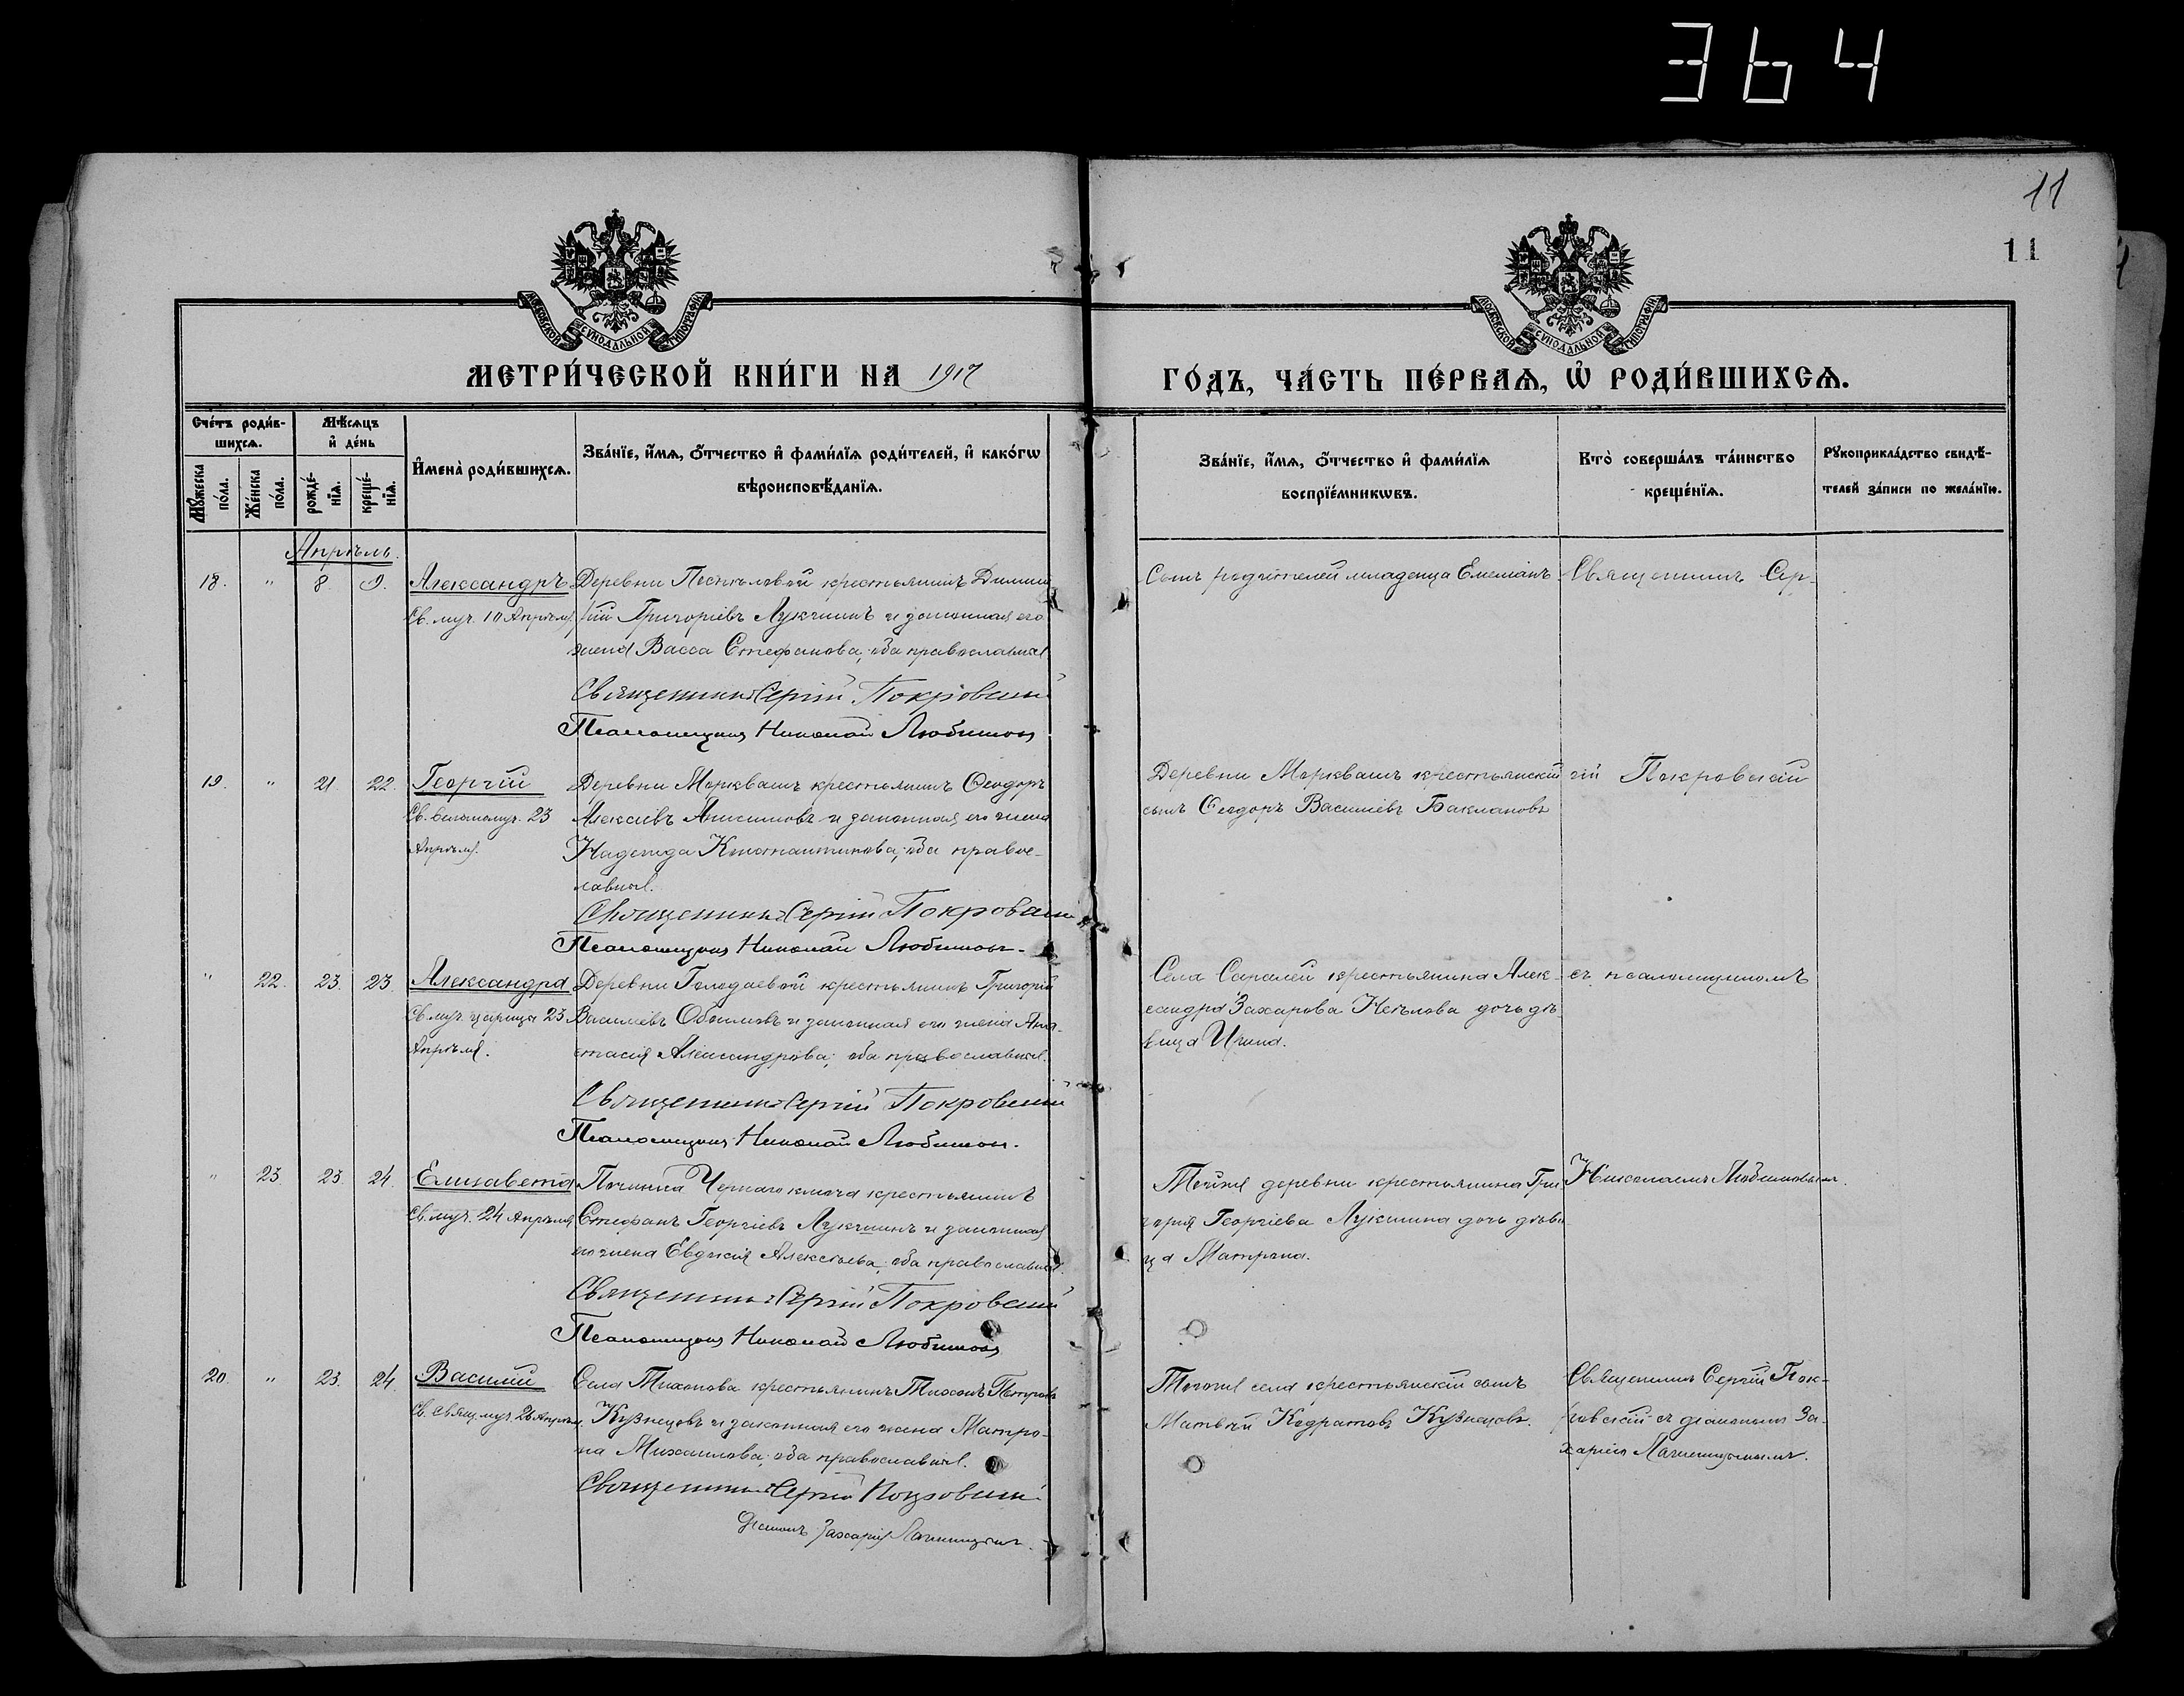 364
11
11
МОСКОВСКОЙ СѴНОДАЛЬНОЙ ТИПОГРАФІИ
МОСКОВСКОЙ СѴНОДАЛЬНОЙ ТИПОГРАФІИ
МЕТРИ́ЧЕСКОЙ КНИ́ГИ НА 1917
ГО́ДЪ, ЧА́СТЬ ПЕ́РВАѦ, Ѡ҆ РОДИ́ВШИХСѦ.
Сче́тъ роди́в-
шихсѧ.
Мꙋ́жеска
по́ла.
Же́нска
по́ла.
Мѣ́сѧцъ
и҆ де́нь
рожде́-
нїѧ.
креще́-
нїѧ.
И҆мена̀ роди́вшихсѧ.
Зва́нїе, и҆́мѧ, ѻ҆́тчество и҆ фами́лїѧ роди́телей, и҆ како́гѡ
вѣроисповѣ́данїѧ.
Зва́нїе, и҆́мѧ, ѻ҆́тчество и҆ фами́лїѧ
воспрїе́мникѡвъ.
Кто̀ соверша́лъ та́инство
креще́нїѧ.
Рꙋкоприкла́дство свидѣ́-
телей за́писи по жела́нїю.
Апрѣль.
18. " 8. 9. Александръ Деревни крестьянинъ Димит-
Св. муч. 10 Апрѣля. рій Григоріевъ Лукшинъ и законная его
жена Васса Стефанова, оба православные.
Священникъ Сергій Покровскій
Псаломщикъ Николай Любимовъ
Сынъ родителей младенца Емеліанъ
Священникъ Сер-
19. " 21. 22. Георгій Деревни Моркваши крестьянинъ Ѳеодоръ
Св. великомуч. 23 Алексѣевъ Анисимовъ и законная его жена
Апрѣля. Надежда Константинова, оба правос-
лавные.
Священникъ Сергій Покровскій
Псаломщикъ Николай Любимовъ.
Деревни Моркваши крестьянскій
сынъ Ѳеодоръ Василіевъ Баклановъ
гій Покровскій
" 22. 23. 23. Александра Деревни Голодаевой крестьянинъ Григорій
Св. муч. царицы 23 Василіевъ и законная его жена Ана-
Апрѣля. стасія Александрова, оба православные.
Священникъ Сергій Покровскій
Псаломщикъ Николай Любимовъ.
Села Саралей крестьянина Алек-
сандра Захарова дочь дѣ-
вица Ирина.
съ псаломщикомъ
" 23. 23. 24. Елизавета Починка Чернаго ключа крестьянинъ
Св. муч. 24 Апрѣля. Стефанъ Георгіевъ Лукшинъ и законная
его жена Евдокія Алексѣева, оба православные.
Священникъ Сергій Покровскій
Псаломщикъ Николай Любимовъ
Той же деревни крестьянина Гри-
горія Георгіева Лукшина дочь дѣви-
ца Матрона.
Николаемъ Любимовымъ.
20. " 23. 24. Василій Села Тихонова крестьянинъ Тихонъ Петровъ
Св. свящ. муч. 26 Апрѣля. Кузнецовъ и законная его жена Матро-
на Михаилова, оба православные.
Священникъ Сергій Покровскій
Діаконъ Захарій
Того же села крестьянскій сынъ
Матвѣй Кодратовъ Кузнецовъ.
Священникъ Сергій Пок-
ровскій съ діакономъ За-
харіею